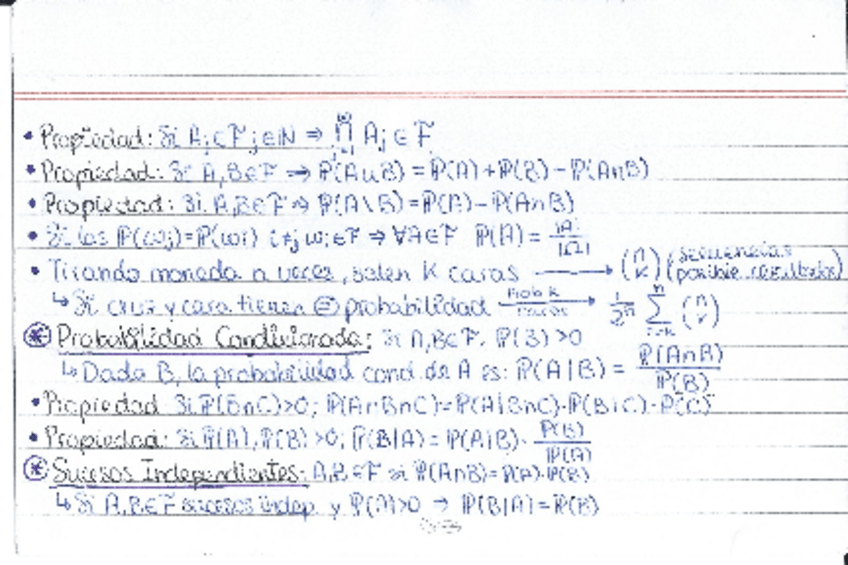 • Propiedad: Si Aj∈F j∈N ⇒ ∩ Aj ∈ F
• Propiedad: Si A,B∈F ⇒ P(A∪B) = P(A)+P(B)-P(A∩B)
• Propiedad: Si A,B∈F ⇒ P(A\B) = P(B)-P(A∩B)
• Si los P(ωj)=P(ωi) i≠j ωi∈F ⇒ ∀A∈F P(A) = |A|/|Ω|
• Tirando moneda n veces, salen K caras → (n K) (secuencias posible resultados)
↳ Si cruz y cara tienen = probabilidad → 1/2ⁿ Σ (n
⊛ Probabilidad Condicionada: Si A,B∈F. P(B)>0
↳ Dado B, la probabilidad cond. de A es: P(A|B) = P(A∩B)/P(B)
• Propiedad Si P(B∩C)>0; P(A∩B∩C)=P(A|B∩C)·P(B|C)·P(C)
• Propiedad: Si P(A),P(B)>0; P(B|A)=P(A|B)· P(B)/P(A)
⊛ Sucesos Independientes: A,B∈F si P(A∩B)=P(A)·P(B)
↳ Si A,B∈F sucesos indep. y P(A)>0 ⇒ P(B|A)=P(B)